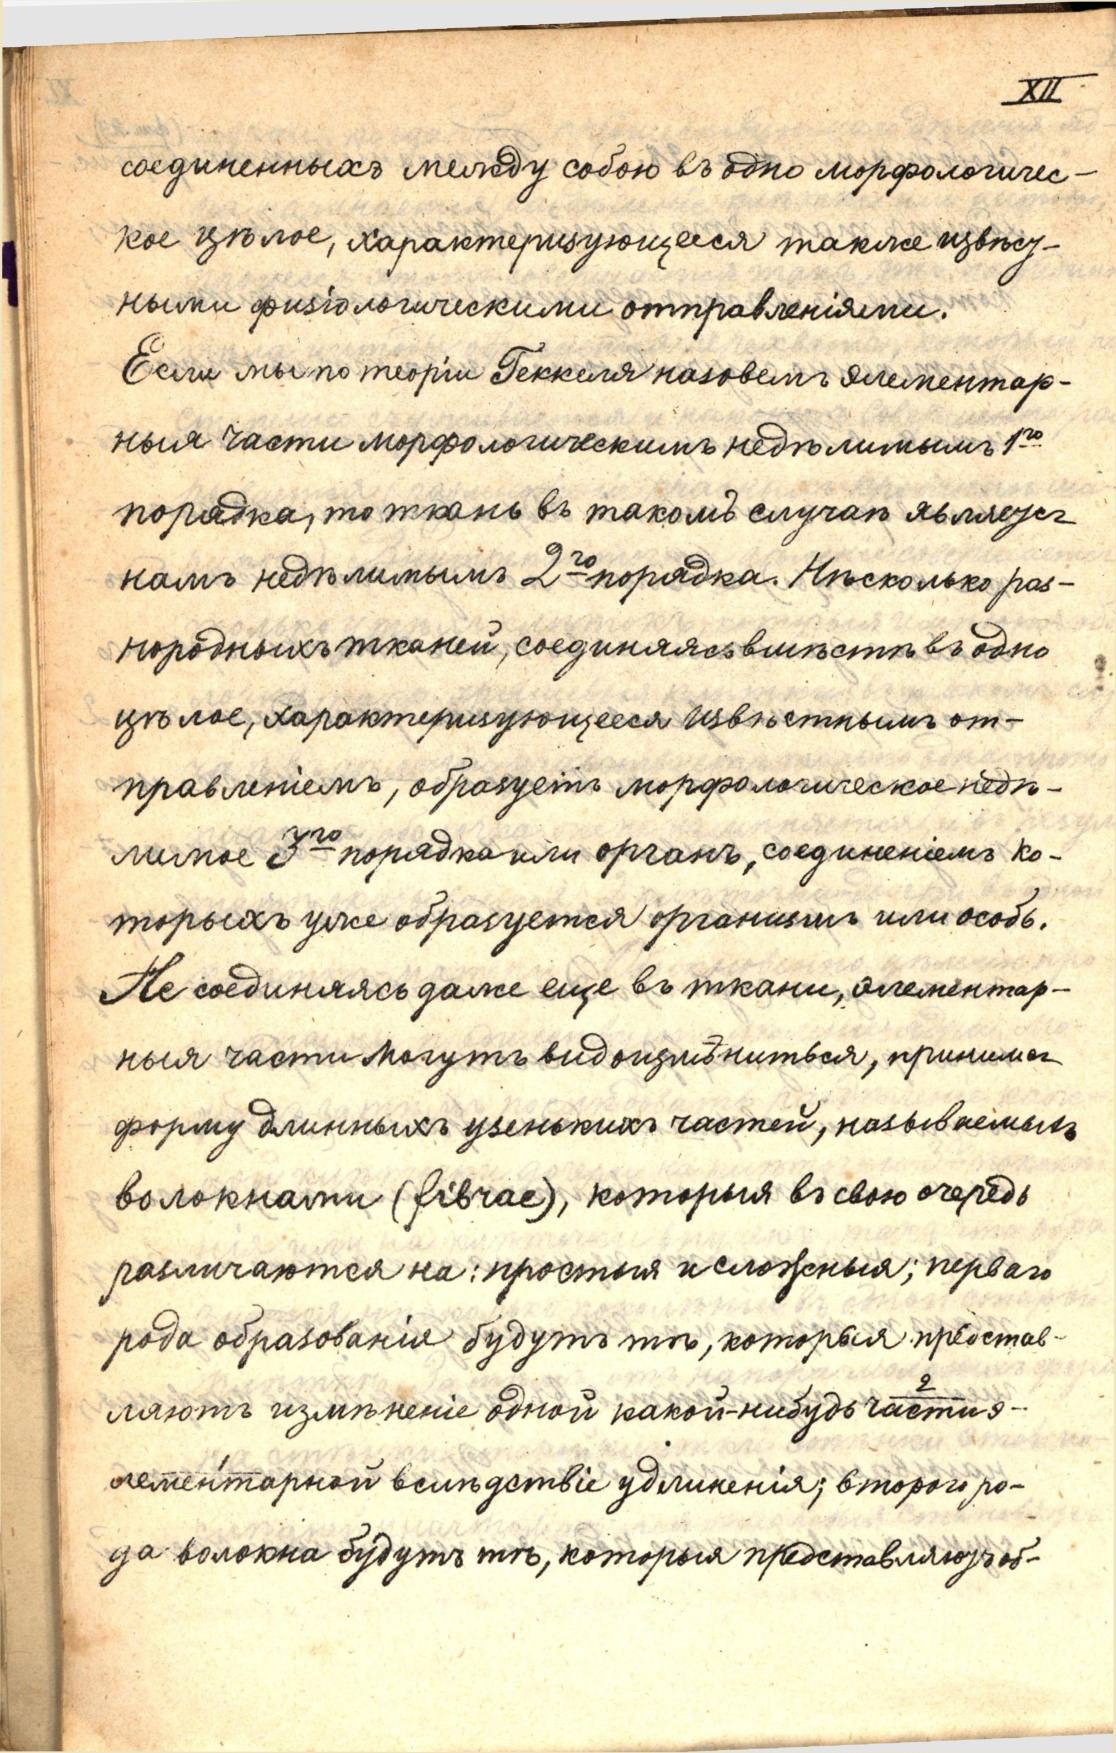 XII
соединенныхъ между собою въ одно морфологичес-
кое цѣлое, характеризующееся также извѣст-
ными физіологическими отправленіями.
Если мы по теоріи Геккеля назовемъ элементар-
ныя части морфологическимъ недѣлимымъ 1го
порядка, то ткань въ такомъ случаѣ является
намъ недѣлимымъ 2го порядка. Нѣсколько раз-
нородныхъ тканей, соединяясь вмѣстѣ въ одно
цѣлое, характеризующееся извѣстнымъ от-
правленіемъ, образуетъ морфологическое недѣ-
лимое 3го порядка или органъ, соединеніемъ ко-
торыхъ уже образуется организмъ или особь.
Не соединяясь даже еще въ ткани, элементар-
ныя части могутъ видоизмѣниться, принимая
форму длинныхъ узенькихъ частей, называемыхъ
волокнами (fibrae), которыя въ свою очередь
различаются на: простыя и сложныя; перваго
рода образованія будутъ тѣ, которыя представ-
ляютъ измѣненіе одной какой-нибудь части э-
2
лементарной вслѣдствіе удлиненія; второго ро-
да волокна будутъ тѣ, которыя представляютъ об-